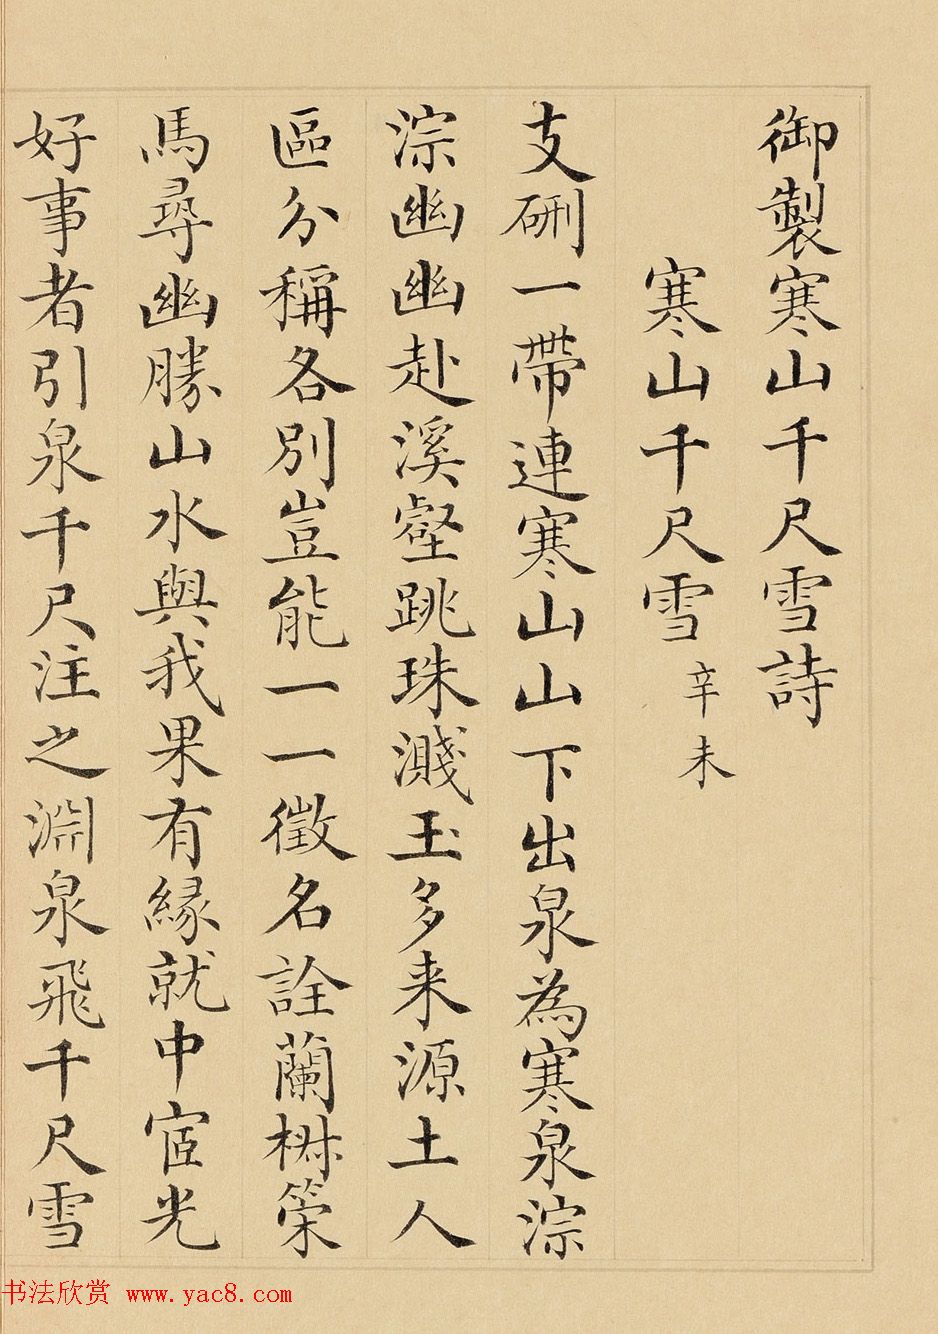 御製寒山千尺雪詩
寒山千尺雪 辛未
支硎一帶連寒山山下出泉為寒泉淙
淙幽幽赴溪壑跳珠濺玉多来源土人
區分稱各別豈能一一徵名詮蘭椒策
馬尋幽勝山水與我果有緣就中宧光
好事者引泉千尺注之淵泉飛千尺雪
书法欣赏 www.yac8.com